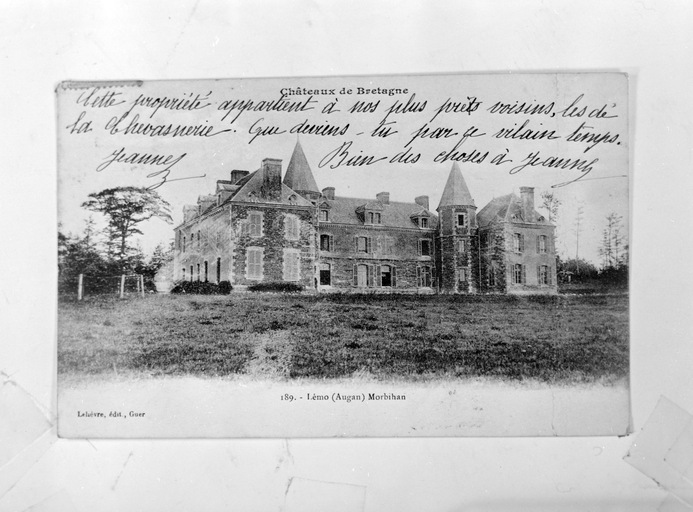 Châteaux de Bretagne
Cette propriété appartient à nos plus prêts voisins, les dé
la Chevasnerie. Que deviens-tu par ce vilain temps.
Jeanne Bien des choses à Jeanne
189. - Lémo (Augan) Morbihan
Lelièvre, édit., Guer